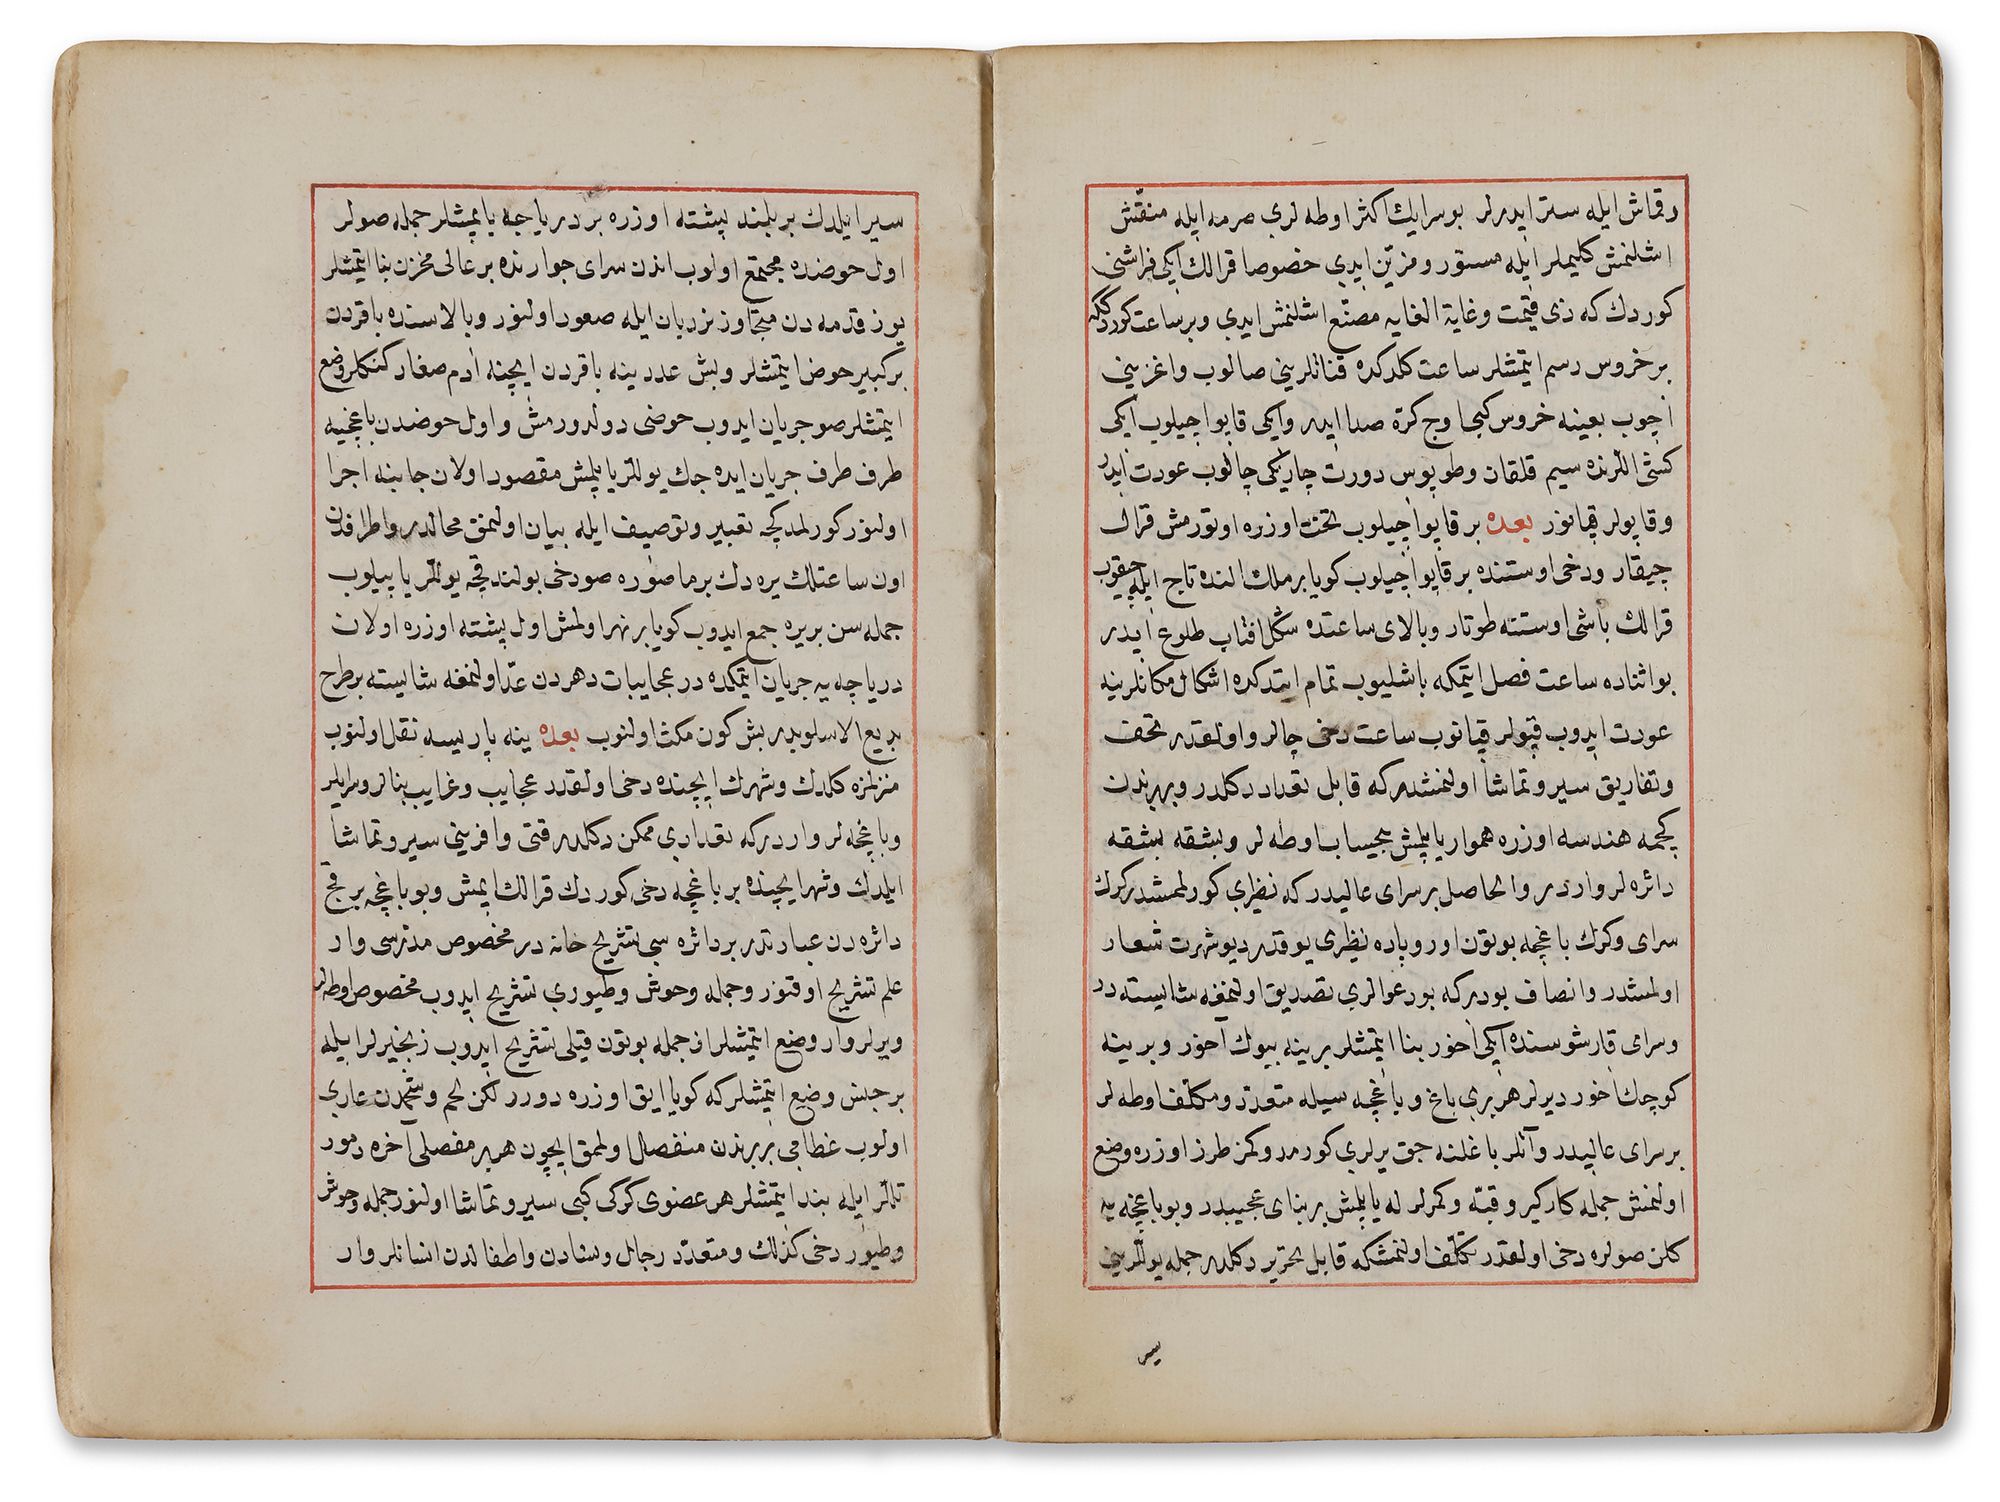 وقماش ايله ستر ايدرلر بو سرايك اكثر اوطه لرى صرمه ايله منقش
اشلنمش كليملر ايله مستور و مزين ايدى خصوصا قرالك ايكى فراشنى
كوردك كه ذى قيمت و غاية الغايه مصنع اشلنمش ايدى و بر ساعت كوردك كه
بر خروس رسم ايتمشلر ساعت كلدكده قنادلرينى صالوب و اغزينى
اچوب بعينه خروس كبى اوچ كره صدا ايدر و ايكى قاپو اچيلوب ايكى
كشى اللرنده سيم قلقان و طوپوس دورت چاريكى چالوب عودت ايدر
و قاپولر قپانور بعده بر قاپو اچيلوب تخت اوزره اوتورمش قرال
چيقار و دخى اوستنده بر قاپو اچيلوب كويا بر ملك النده تاج ايله چيقوب
قرالك باشى اوستنه طوتار و بالاى ساعتده شكل افتاب طلوع ايدر
بو اثناده ساعت فصل ايتمكه باشليوب تمام ايتدكده اشكال مكانلرينه
عودت ايدوب قپولر قپانوب ساعت دخى چالر و اولقدر تحف
و تفاريق سير و تماشا اولنمشدر كه قابل تعداد دكلدر و بربرندن
كچمه هندسه اوزره هموار ياپلمش بيحساب اوطه لر و بشقه بشقه
دائره لر واردر والحاصل بر سراى عاليدر كه نظيرى كورلممشدر كرك
سراى و كرك باغچه بوتون اوروپاده نظيرى يوقدر ديو شهرت شعار
اولمشدر و انصاف بودر كه بو دعوالرى تصديق اولنمغه شايسته در
و سراى قارشوسنده ايكى اخور بنا ايتمشلر برينه بيوك آخور و برينه
كوچك اخور ديرلر هر برى باغ و باغچه سيله متعدد و مكلف اوطه لر
بر سراى عاليدر و آتلر باغلنه جق يرلرى كوردم و كمر طرز اوزره وضع
اولنمش جمله كاركير و قبه و كمرلر له ياپلمش بر بناى عجيبدر و بو باغچه يه
كلن صولره دخى اولقدر تكلف اولنمشكه قابل تحرير دكلدر جمله يوللرينى
سير
سير ايلدك بر بلند پشته اوزره بر درياچه ياپمشلر جمله صولر
اول حوضده مجتمع اولوب اندن سراى جوارنده بر عالى مخزن بنا ايتمشلر
يوز قدمه دن متجاوز نردبان ايله صعود اولنور و بالاسنده باقردن
بر كبير حوض ايتمشلر و بش عدد ينه باقردن ايچنه ادم صغار كنكلر وضع
ايتمشلر صو جريان ايدوب حوضى دولدورمش و اول حوضدن باغچيه
طرف طرف جريان ايده جك يوللر ياپلمش مقصود اولان جانبه اجرا
اولنور كورلمدكجه تعبير و توصيف ايله بيان اولنمق محالدر و اطرافدن
اون ساعتلك يره دك بر ماصوره صو دخى بولندقجه يوللر ياپيلوب
جمله سن بر يره جمع ايدوب كويا بر نهر اولمش اول پشته اوزره اولان
درياچه يه جريان ايتمكده در عجايبات دهردن عد اولنمغه شايسته بر طرح
بديع الاسلوبدر بش كون مكث اولنوب بعده ينه پاريسه نقل اولنوب
منزلمزه كلدك و شهرك ايچنده دخى اولقدر عجايب و غرايب بنالر و سرايلر
و باغچه لر واردر كه تعدادى ممكن دكلدر قتى وافرينى سير و تماشا
ايلدك و شهر ايچنده بر باغچه دخى كوردك قرالك ايمش و بو باغچه بر قچ
دائره دن عبارتدر بر دائره سى تشريح خانه در مخصوص مدرسى وار
علم تشريح اوقنور و جمله وحوش و طيورى تشريح ايدوب مخصوص اوطه لر
و يرلر وار وضع ايتمشلر از جمله بوتون فيلى تشريح ايدوب زنجيرلر ايله
بر جنس وضع ايتمشلر كه كويا اياق اوزره دورر لكن لحم و شحمدن عارى
اولوب عظامى بربرندن منفصل اولمق ايچون هر بر مفصلى آخره دمور
تللر ايله بند ايتمشلر هر عضوى كركى كبى سير و تماشا اولنور جمله وحوش
و طيور دخى كذلك و متعدد رجال و نسادن و اطفالدن انسانلر وار